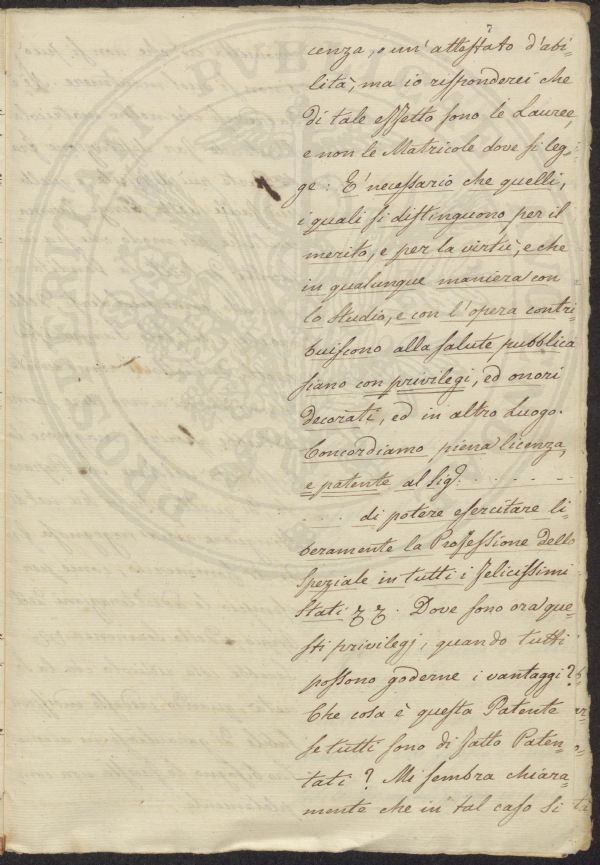 cenza, o un' attestato d'abi-
lità, ma io risponderei che
di tale effetto sono le Lauree,
e non le Matricole dove si leg-
ge: E' necessario che quelli,
i quali si distinguono per il
merito, e per la virtù, e che
in qualunque maniera con
lo studio, e con l'opera contri-
buiscono alla salute pubblica
siano con privilegi, ed onori
decorati, ed in altro Luogo.
Concordiamo piena licenza,
e patente al Sig.r . . . . . .
. . . . di potere esercitare li-
beramente la Professione dello
Speziale in tutti i Felicissimi
Stati. Dove sono ora que-
sti privilegj, quando tutti
possono goderne i vantaggi?
Che cosa è questa Patente
se tutti sono di fatto Paten-
tati? Mi sembra chiara-
mente che in tal caso si